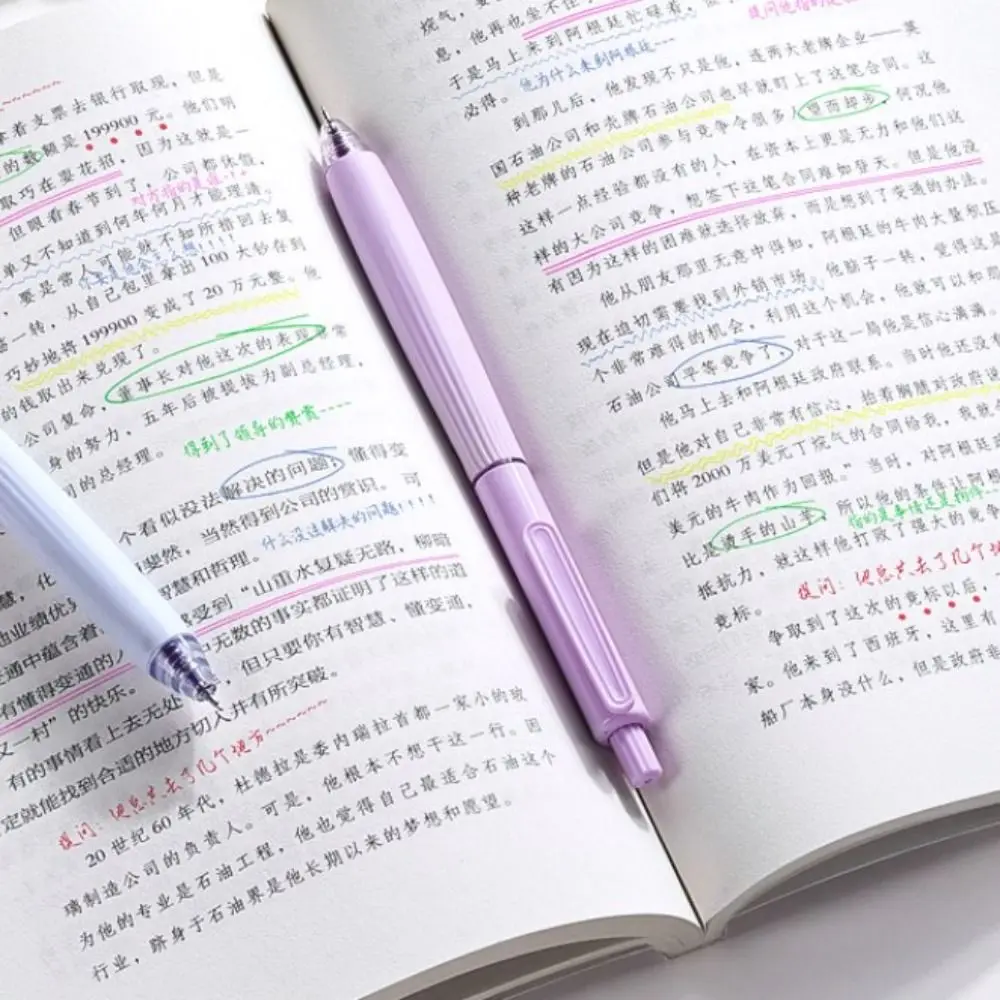 拿着支票去银行取现，但是
的数额是 199900 元。他们明
取巧在耍花招，因为这就是一
但眼看春节到了，公司都休假，
对方指的是谁？
单又不知道到何年何月才能理清。
要是常人可能就不知所措回去复
一转，从自己包里拿出 100 大钞存到
巧妙地将 199900 变成了 20 万元整。他
的钱取出来兑现了。
公司复命，董事长对他这次的表现非常
身的努力，五年后被提拔为副总经理，
司的总经理。
得到了领导的赞赏
个看似没法解决的问题，懂得变
斐然，当然得到公司的赏识。可
智慧和哲理。
什么没法解决的问题！！！！
受到“山重水复疑无路，柳暗
无数的事实都证明了这样的道
但只要你有智慧、懂变通，
又一村”的快乐。
有的事情看上去无处
定就能找到合适的地方切入并有所突破。
提问：他总共去了几个地方
20 世纪 60 年代，杜德拉是委内瑞拉首都一家小的玻
璃制造公司的负责人。可是，他根本不想干这一行。因
为他的专业是石油工程，他也觉得自己最适合石油这个
行业，跻身于石油界是他长期以来的梦想和愿望。
息，他再也坐不住了
提问他指的是
于是马上来到阿根廷忙碌着，
必得。
他为什么来到阿根廷
到那儿后，他发现不只是他，连两大老牌企业——英
国石油公司和壳牌石油公司也早就盯上了这笔合同。这
种老牌的石油公司参与竞争令很多人望而却步，何况他
这样一点经验都没有的人，在资本上更是无力和他们这
样的大公司竞争，想签下这笔合同难如登天。但是他没
有因为这样的困难就选择放弃，而是想到了变通的办法。
他从朋友那里无意中得知，阿根廷的牛肉大量积压
现在迫切需要找到外销市场，他脑子一转，觉得这是
个非常难得的机会，利用这个机会，他就可以和那
石油公司平等竞争了，对于这一局他是信心满满。
他马上去和阿根廷政府联系。当时他还没有
但是他对自己非常有信心，拍着胸脯对政府说
们将 2000 万美元丁烷气的合同给我，我就
美元的牛肉作为回报。”当时，对阿根廷
比是烫手的山芋，所以他的条件让阿根
指的是事情还是物件
抵抗力，就这样他打败了强大的竞争
竞标。
提问：他总共去了几个
争取到了这次的竞标以后，
家。他来到了西班牙，这里有
船厂本身没什么，但是政府